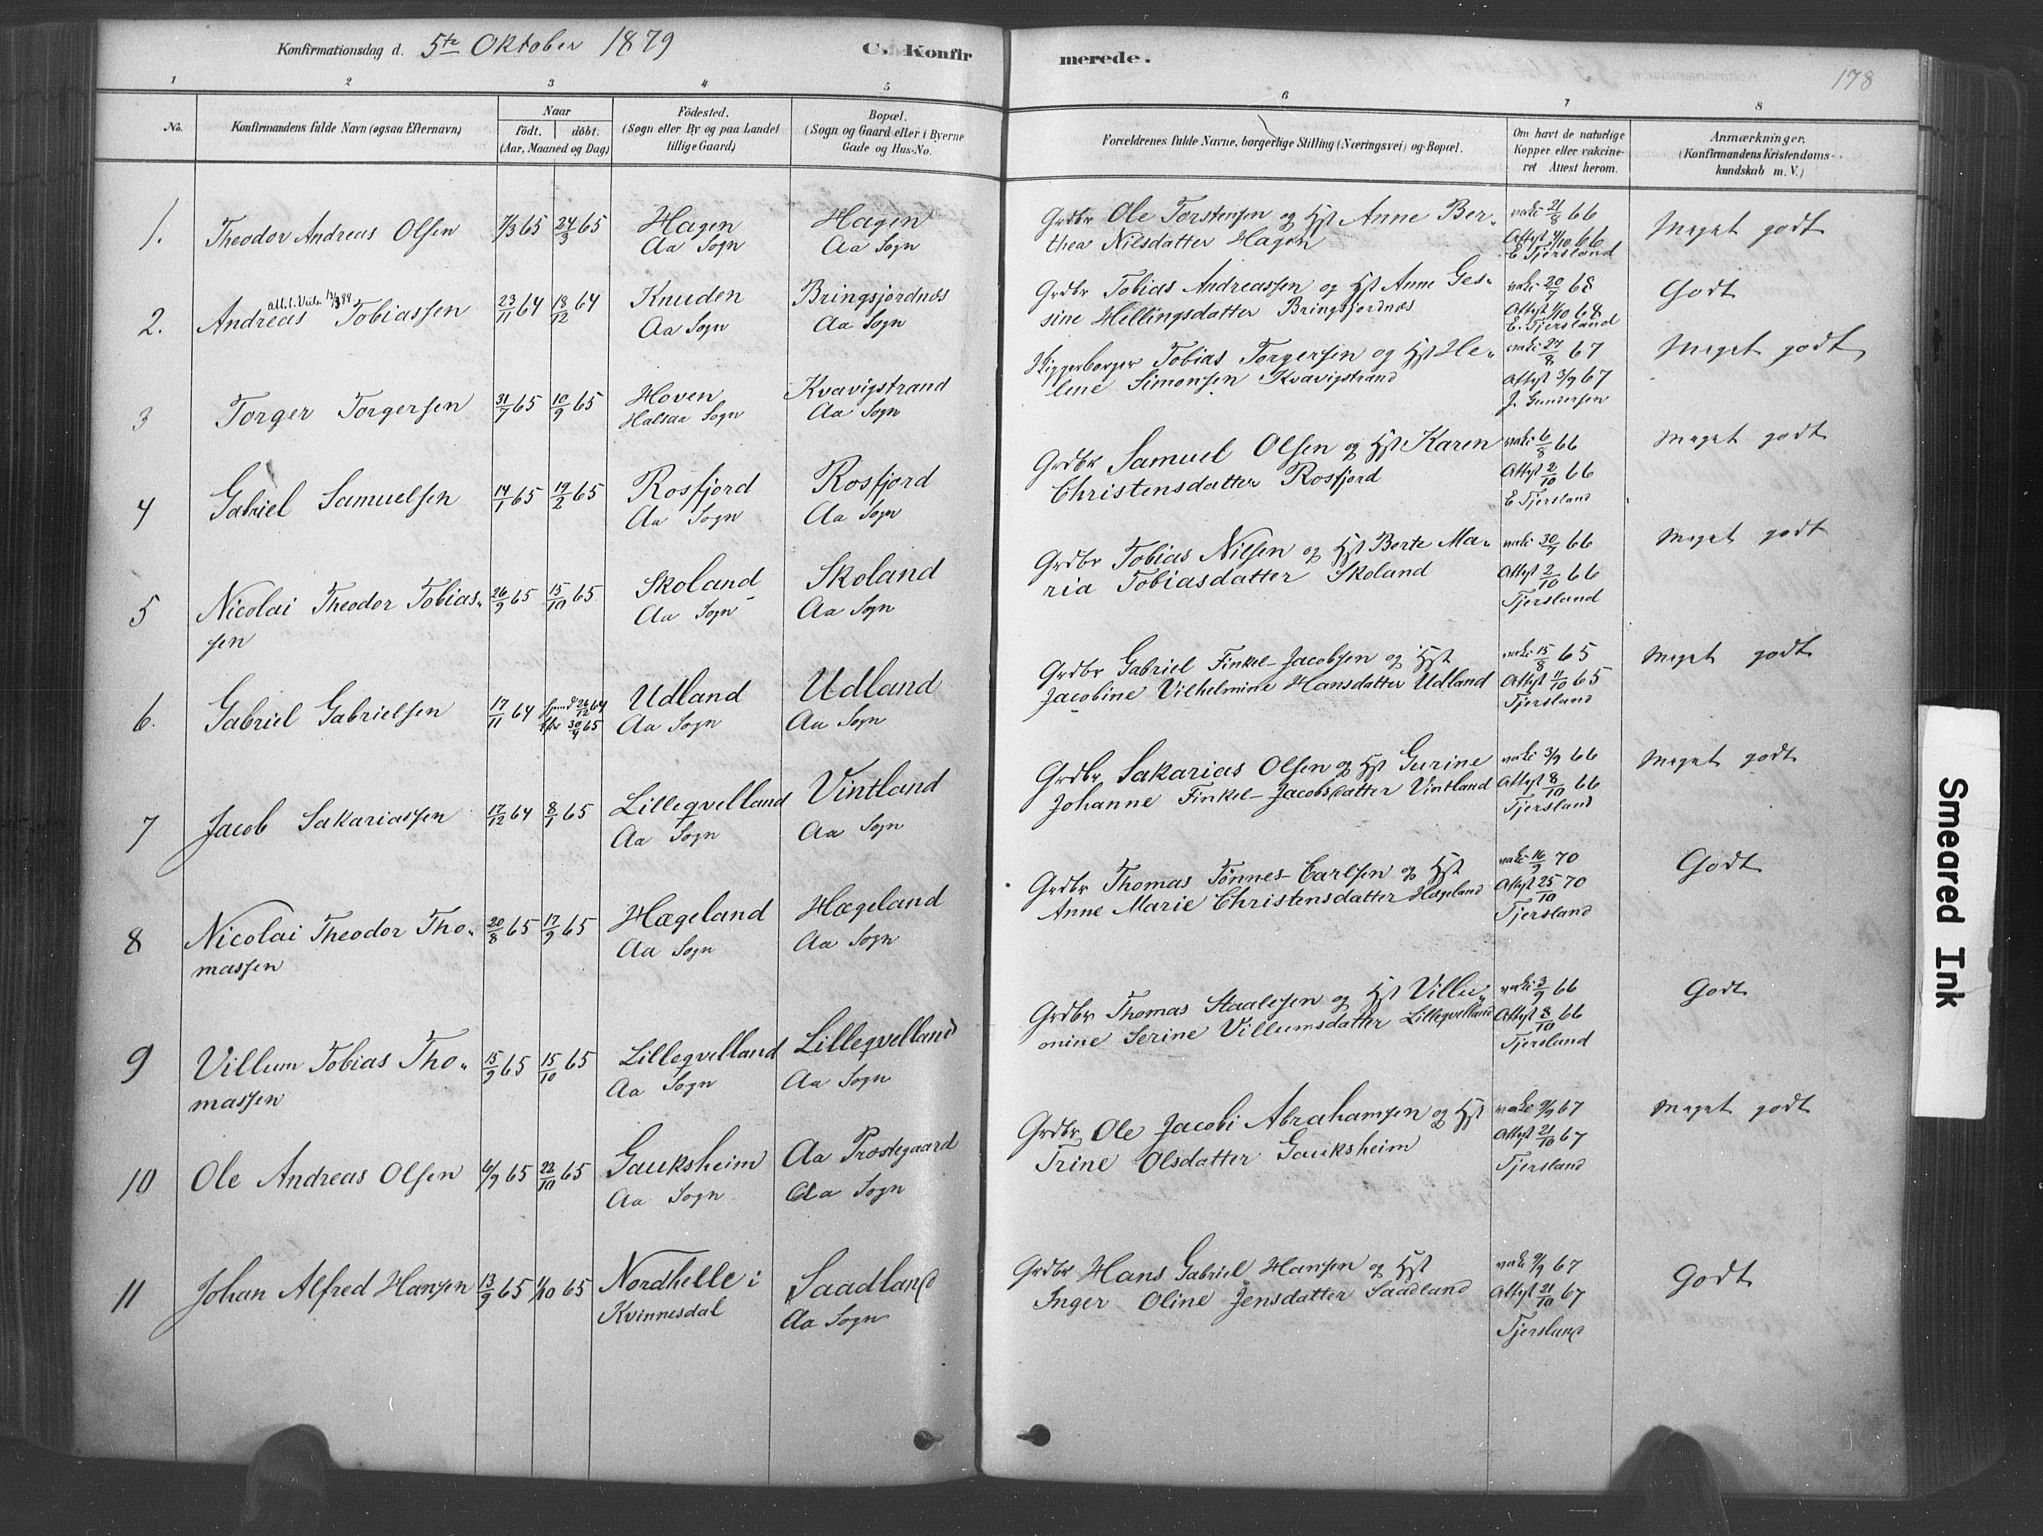 Konfirmationsdag d. 5te Oktober 1879
C. Konfirmerede.
178
1 2 3 4 5 6 7 8
No.
Konfirmandens fulde Navn (ogsaa Efternavn)
Naar
födt. döbt.
(Aar, Maaned og Dag)
Födested.
(Sogn eller By og paa Landet
tillige Gaard)
Bopæl.
(Sogn og Gaard eller i Byerne
Gade og Hus-No.
Forældrenes fulde Navne, borgerlige Stilling (Næringsvei) og Bopæl.
Om havt de naturlige
Kopper eller vakcine-
ret Attest herom.
Anmærkninger.
(Konfirmandens Kristendoms-
kundskab m. V.)
1. Theodor Andreas Olsen 7/3 65 24/3 65
Hagen
Aa Sogn
Hagen
Aa Sogn
Grdbr Ole Torstensen og Hst Anne Ber-
thea Nilsdatter Hagen
vakc 21/8 66
Attest 4/10 66
E Tjersland
Meget godt
2. Andreas Tobiassen 23/11 64 18/12 64
Knuden
Aa Sogn
Bringsjordnes
Aa Sogn
Grdbr Tobias Andreassen og Hst Anne Ges-
sine Hellingsdatter Bringsfjordnes
vakc 20/9 68
Attest 1/10 68
E. Tjersland
Godt
3 Torger Torgersen 31/7 65 10/9 65
Hoven
Halsaa Sogn
Kvavigstrand
Aa Sogn
Tobias Torgersen og Hst He-
lene Simonsen Kvavigstrand
vakc 27/8 67
Attest 3/9 67
J. Gundersen
Meget godt
4 Gabriel Samuelsen 14/1 65 19/2 65
Rosfjord
Aa Sogn
Rosfjord
Aa Sogn
Grdbr Samuel Olsen og Hst Karen
Christensdatter Rosfjord
vakc 6/8 66
Attest 2/10 66
E Tjersland
Meget godt
5 Nicolai Theodor Tobias-
sen
26/9 65 15/10 65
Skoland
Aa Sogn
Skoland
Aa Sogn
Grdbr Tobias Nilsen og Hst Berte Ma-
ria Tobiasdatter Skoland
vakc 30/9 66
Attest 2/10 66
Tjersland
Meget godt
6. Gabriel Gabrielsen 17/11 64 26/12 64
30/4 65
Udland
Aa Sogn
Udland
Aa Sogn
Grdbr Gabriel Finkel-Jacobsen og Hst
Jacobine Vilhelmine Hansdatter Udland
vakc 15/8 65
Attest 11/10 65
Tjersland
Meget godt
7 Jacob Sakariassen 17/12 64 8/1 65
Lilleqvelland
Aa Sogn
Vintland
Aa Sogn
Grdbr Sakarias Olsen og Hst Gurine
Johanne Finkel-Jacobsdatter Vintland
vakc 3/9 66
Attest 8/10 66
Tjersland
Meget godt
8 Nicolai Theodor Tho-
massen
20/8 65 17/9 65
Hægeland
Aa Sogn
Hægeland
Aa Sogn
Grdbr Thomas Tönnes-Carlsen og Hst
Anne Marie Christensdatter Hægeland
vakc 16/9 70
Attest 25/10 70
Tjersland
Godt
9 Villum Tobias Tho-
massen
15/9 65 15/10 65
Lilleqvelland
Aa Sogn
Lilleqvelland
Aa Sogn
Grdbr Thomas Staalesen og Hst Villu-
mine Serine Villumsdatter Lilleqvelland
vakc 3/9 66
Attest 8/10 66
Tjersland
Godt
10 Ole Andreas Olsen 6/9 65 22/10 65
Gauksheim
Aa Sogn
Aa Prostegaard
Aa Sogn
Grdbr Ole Jacobi Abrahamsen og Hst
Trine Olsdatter Gauksheim
vakc 9/9 67
Attest 21/10 67
Tjersland
Meget godt
11 Johan Alfred Hansen 13/9 65 1/10 65
Nordhelle i
Kvinnesdal
Saadland
Aa Sogn
Grdbr Hans Gabriel Hansen og Hst
Inger Oline Jensdatter Saadland
vakc 9/9 67
Attest 21/10 67
Tjersland
Godt
Smeared Ink